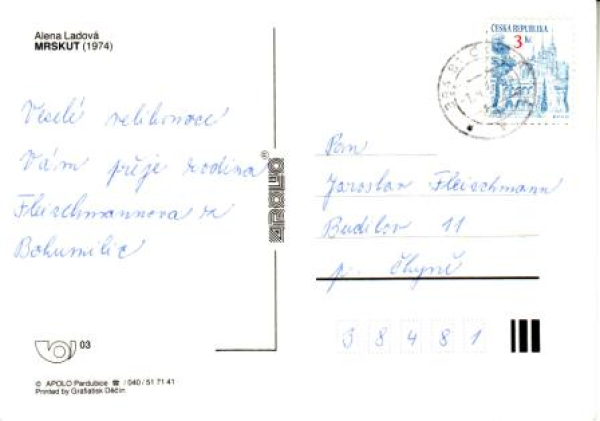 Alena Ladová
MRSKUT (1974)
ČESKÁ REPUBLIKA
3 Kč
Veselé velikonoce
Vám přeje rodina
Fleischmannova z
Bohumilic
APOLO®
Pan
Jaroslav Fleischmann
Budilov 11
p. Čkyně
38481
03
© APOLO Pardubice ☎ /040/ 51 71 41
Printed by Grafiatisk Děčín